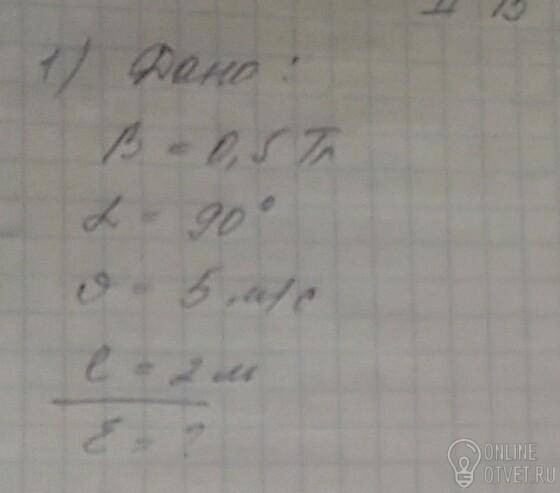 II В
1) Дано:
B = 0,5 Тл
α = 90°
υ = 5 м/с
l = 2 м
ε = ?
ONLINE
OTVET.RU